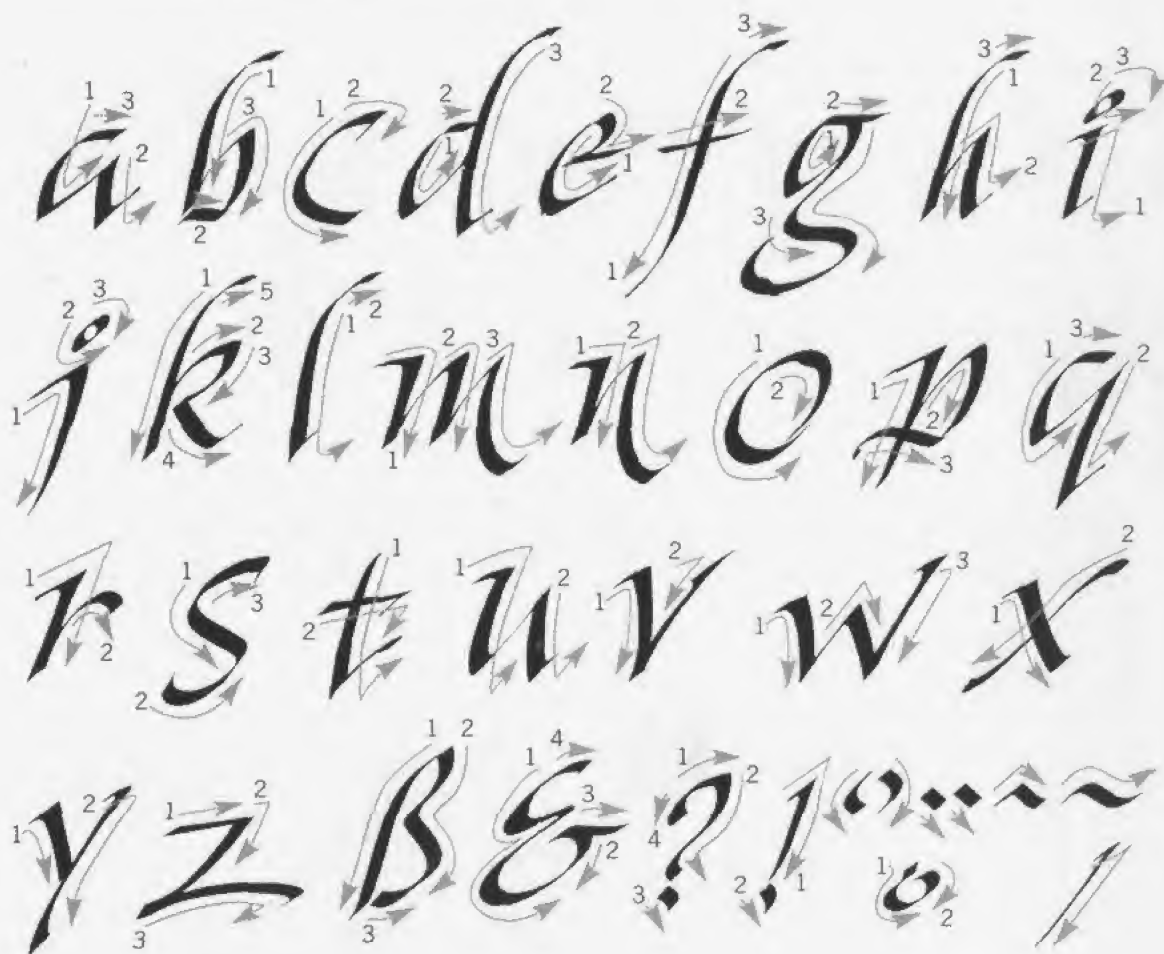 a b c d e f g h i
j k l m n o p q
r s t u v w x
y z ß & ? !